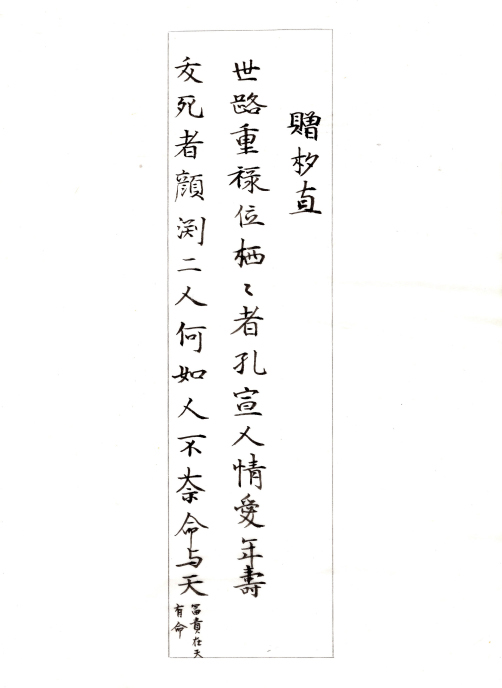 贈杪直
世路重禄位栖々者孔宣人情愛年壽
夭死者顔渕二人何如人不奈命与天
富貴在天
有命